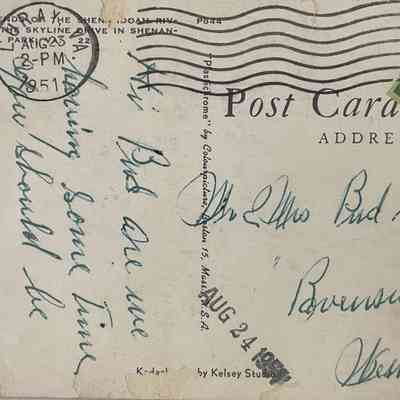 ENDS OF THE SHENANDOAH RIV-
ING SKYLINE DRIVE IN SHENAN-
PARK 22
P844
LURAY VA
AUG 23
2-PM
1951
Hi Bud are we
having some time
you should be
"Plastichrome" by Colourpicture, Boston 15, Mass., U.S.A.
Post Card
ADDRE
Mr & Mrs Bud
AUG 24 195
Kodach by Kelsey Studio